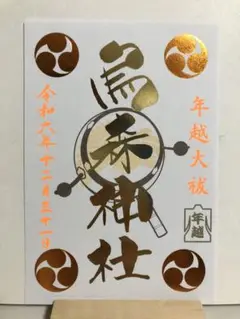 年越大祓
烏森神社
令和六年十二月三十一日
年越